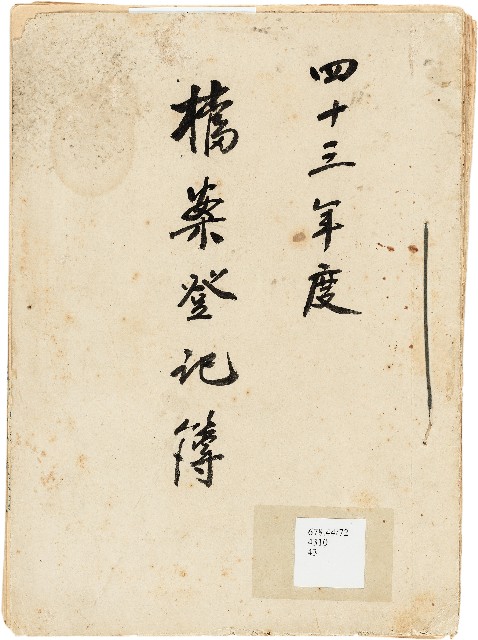 四十三年度
檔案登記簿
678.44/72
4310
43